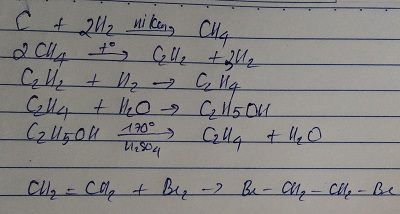 C + 2H2 niken→ CH4
2CH4 t°→ C2H2 + 3H2
C2H2 + H2 → C2H4
C2H4 + H2O → C2H5OH
C2H5OH 170° H2SO4→ C2H4 + H2O
CH2 = CH2 + Br2 → Br - CH2 - CH2 - Br